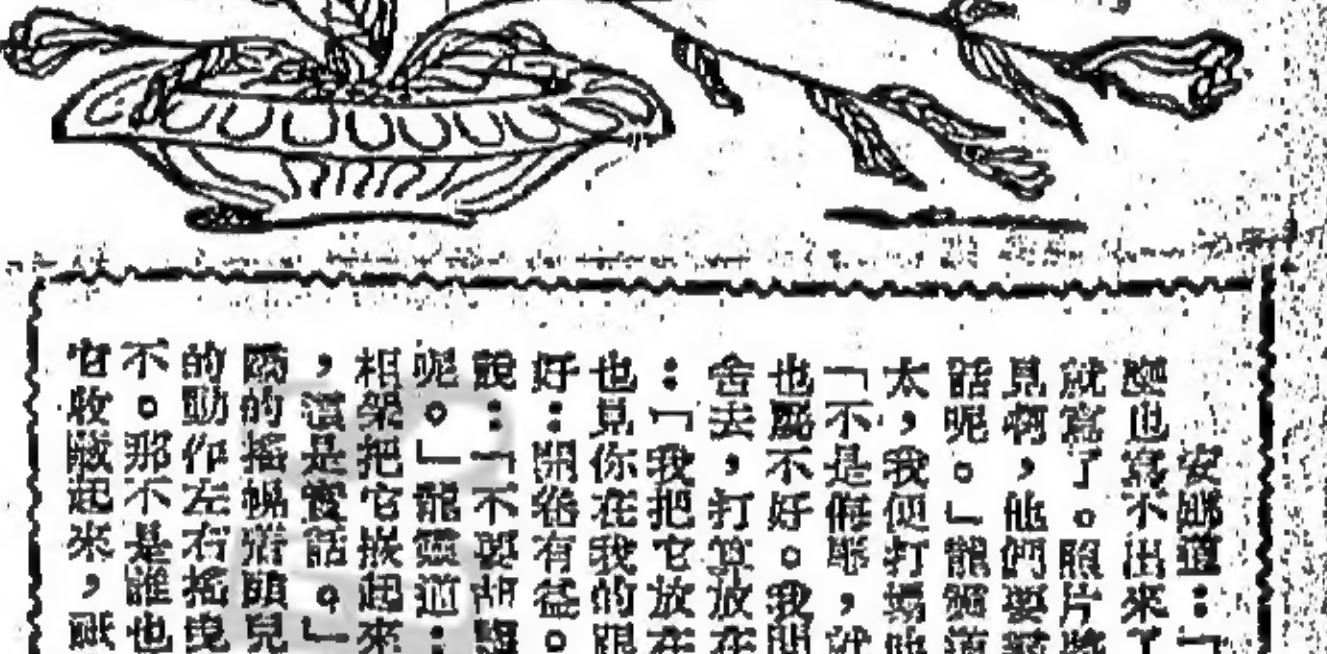 安娜道：「
麼也寫不出來了
就寫了。照片
見啊，他們要
話呢。」龍靈道
太，我便打
「不是侮辱，
也屬不好。我
舍去，打算放在
：「我把它放在
也見你在我的跟
好：開卷有益。
說：「不要胡
呢。」龍靈道：
相架把它嵌起來
，這是實話。」
的搖幌着頭兒
的動作左右搖曳
不。那不是誰也
它收藏起來，